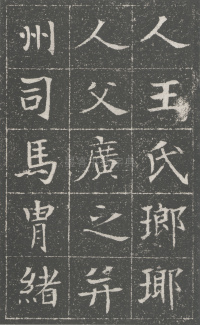 人王氏瑯瑘
人父廣之并
州司馬胄緒